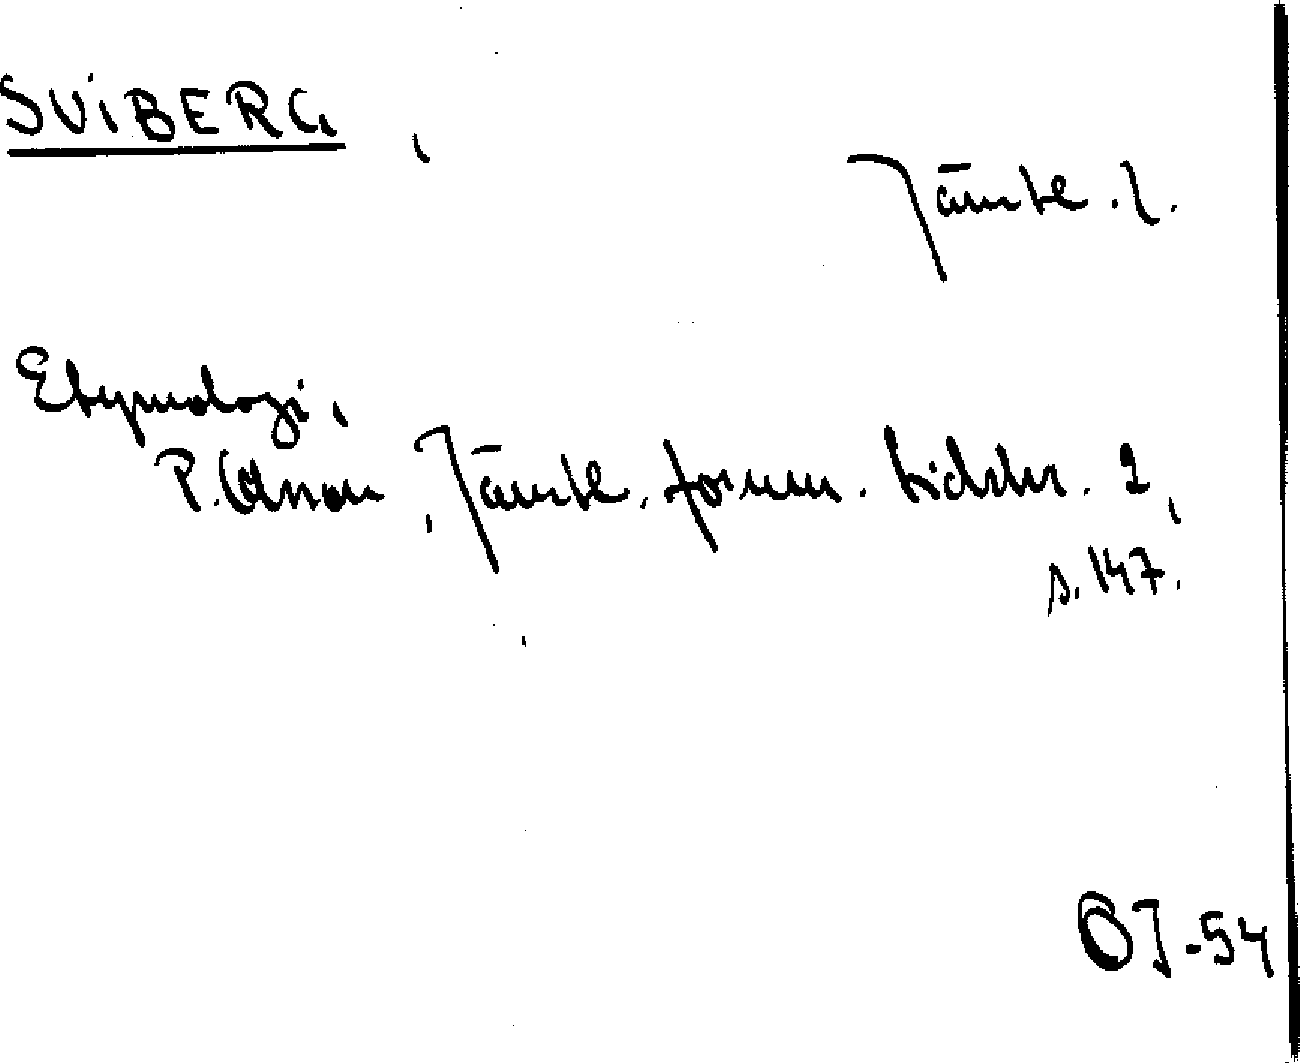 SVIBERG,
Jämtl. l.
Etymologi,
P. Olsson, Jämtl. fornm. tidskr. 2,
s. 147.
OJ-54